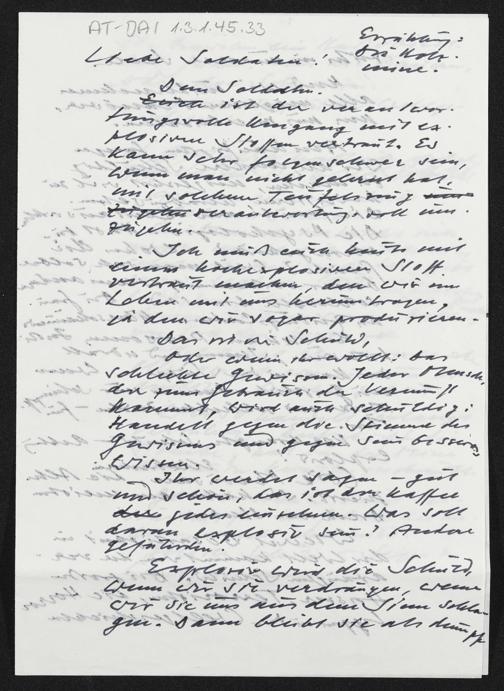 AT-DAI 1.3.1.45.33
Erzählung:
Das Holz-
mine.
Liebe Soldaten!
Dem Soldaten
Euch ist der verantwor-
tungsvolle Umgang mit ex-
plosiven Stoffen vertraut. Es
kann sehr folgenschwer sein,
wenn man nicht gelernt hat,
mit solchem Teufelszeug
umgehen verantwortungsvoll um-
zugehen.
Ich muß euch heute mit
einem hochexplosiven Stoff
vertraut machen, den wir im
Leben mit uns herumtragen,
ja den wir sogar produzieren.
Das ist die Schuld,
Oder wenn ihr wollt: das
schlechte Gewissen. Jeder Mensch,
der zum Gebrauch der Vernunft
kommt, wird auch schuldig:
Handelt gegen die Stimme des
Gewissens und gegen sein besseres
Wissen.
Ihr werdet sagen – gut
und schön, das ist der Kaffee
jedes einzelnen. Was soll
daran explosiv sein? Andere
gefährden.
Explosiv wird die Schuld,
wenn wir sie verdrängen, wenn
wir sie uns aus dem Sinn schla-
gen. Dann bleibt sie als dumpf